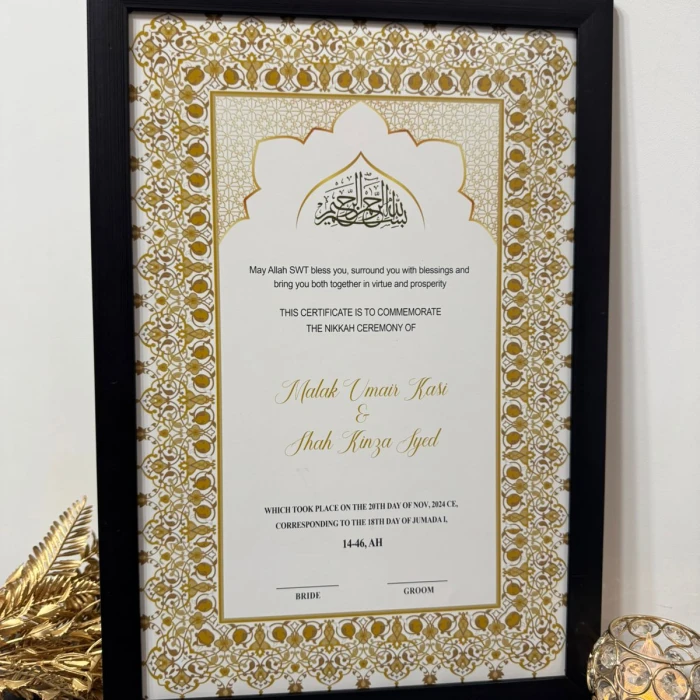 بسم الله الرحمن الرحيم
May Allah SWT bless you, surround you with blessings and
bring you both together in virtue and prosperity
THIS CERTIFICATE IS TO COMMEMORATE
THE NIKKAH CEREMONY OF
Malak Umair Kasi
&
Shah Kinza Syed
WHICH TOOK PLACE ON THE 20TH DAY OF NOV, 2024 CE,
CORRESPONDING TO THE 18TH DAY OF JUMADA I,
14-46, AH
BRIDE
GROOM